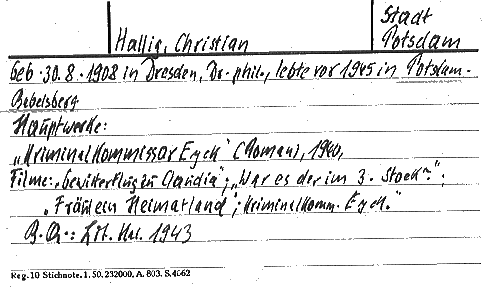 Stadt
Hallig, Christian Potsdam
geb. 30.8.1908 in Dresden, Dr. phil., lebte vor 1945 in Potsdam-
Babelsberg
Hauptwerke:
„Kriminalkommissar Eyck“ (Roman), 1940,
Filme: „Gewitterflug zu Claudia“; „War es der im 3. Stock?“;
„Fräulein Heimatland“; Kriminalkomm. Eyck.“
B.Qu.: Lit. Kal. 1943
Reg. 10 Stichnote. 1. 50. 232000, A. 803. S. 4062